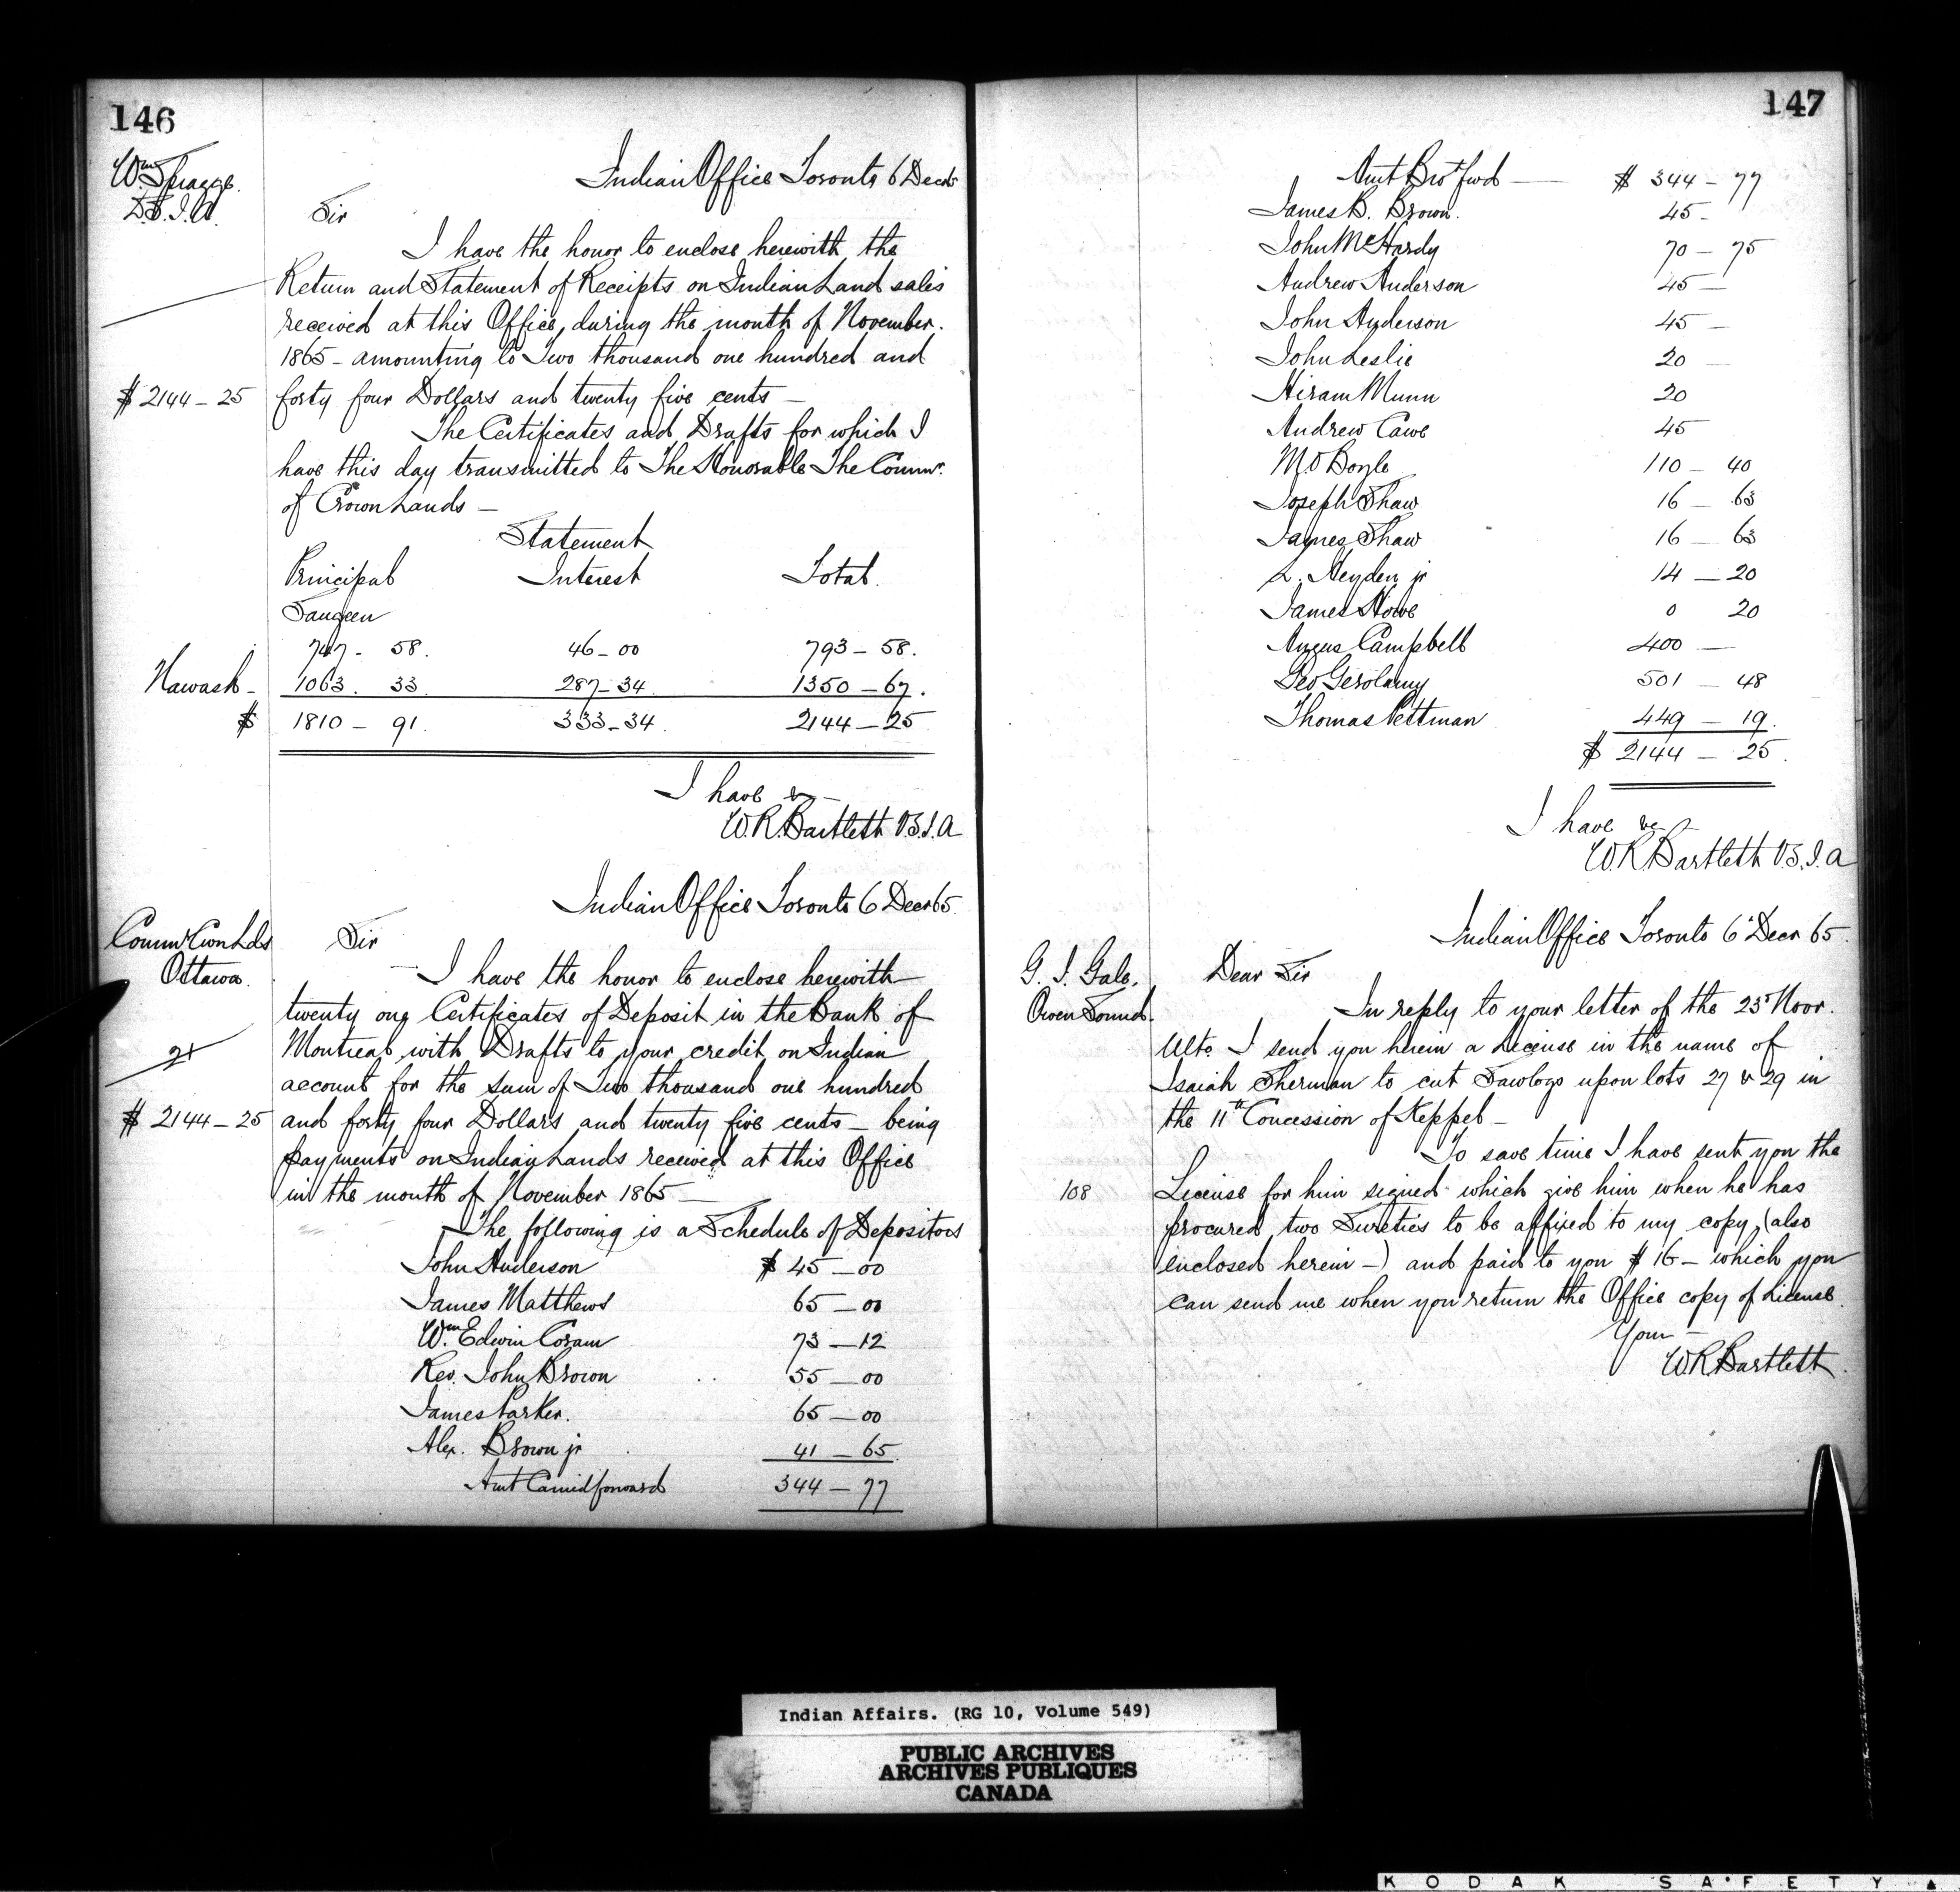 146
Wm Spragge.
D.S.I.A.
Indian Office Toronto 6 Decr 65
Sir
I have the honor to enclose herewith the
Return and Statement of Receipts on Indian Land sales
received at this Office, during the month of November.
1865 - amounting to Two thousand one hundred and
$ 2144 - 25 forty four Dollars and twenty five cents -
The Certificates and Drafts for which I
have this day transmitted to The Honorable The Commr.
of Crown Lands -
Statement
Principal Interest Total.
Saugeen
747 - 58. 46 - 00 793 - 58.
Nawash - 1063. 33 287 - 34. 1350 - 67.
$ 1810 - 91. 333 - 34. 2144 - 25
I have &c -
W.R. Bartlett V.S.I.A
Indian Office Toronto 6 Decr 65.
Commr Crwn Lds
Ottawa.
Sir
- I have the honor to enclose herewith
twenty one Certificates of Deposit in the Bank of
21
Montreal with Drafts to your credit on Indian
account for the sum of Two thousand one hundred
$ 2144 - 25 and forty four Dollars and twenty five cents - being
payments on Indian Lands received at this Office
in the month of November 1865 -
The following is a Schedule of Depositors
John Anderson $ 45 - 00
James Matthews 65 - 00
Wm Edwin Coram 73 - 12
Rev. John Brown 55 - 00
James Parker. 65 - 00
Alex. Brown jr 41 - 65.
Amt Carried forward 344 - 77
147
Amt Brot fwd - $ 344 - 77
James B. Brown. 45 -
John McHardy 70 - 75
Andrew Anderson 45 -
John Anderson 45 -
John Leslie 20 -
Hiram Munn 20
Andrew Cawe 45
M.O Boyle 110 - 40
Joseph Shaw 16 - 63
James Shaw 16 - 63
L. Heyden jr 14 - 20
James Howe 0 20
Angus Campbell 400 -
Geo Gerolamy 501 - 48
Thomas Pettman 449 - 19.
$ 2144 - 25.
I have &c -
W.R. Bartlett V.S.I.A
Indian Office Toronto 6 Decr 65.
G. J. Gale.
Owen Sound.
Dear Sir
In reply to your letter of the 23 Novr.
Ulto I send you herein a License in the name of
Isaiah Sherman to cut Sawlogs upon lots 27 & 29 in
the 11th Concession of Keppel -
To save time I have sent you the
108 License for him signed which give him when he has
procured two Sureties to be affixed to my copy, (also
enclosed herein -) and paid to you $ 16 - which you
can send me when you return the Office copy of License.
Your -
W.R. Bartlett.
Indian Affairs. (RG 10, Volume 549)
PUBLIC ARCHIVES
ARCHIVES PUBLIQUES
CANADA
KODAK SAFETY